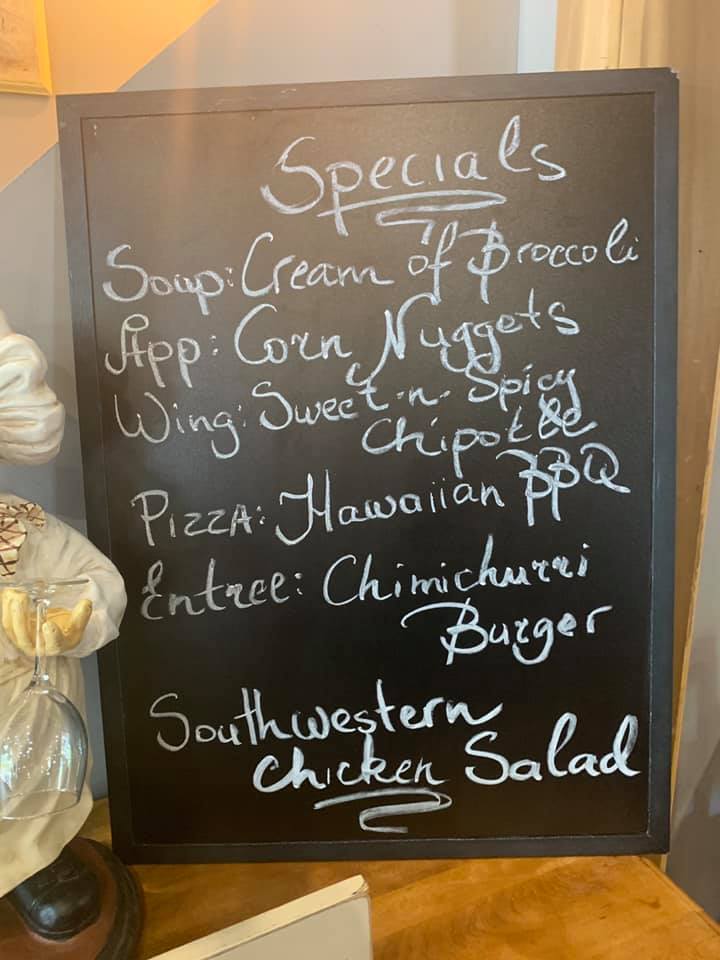 Specials
Soup: Cream of Broccoli
App: Corn Nuggets
Wing: Sweet-n-Spicy
Chipotle
Pizza: Hawaiian BBQ
Entree: Chimichurri
Burger
Southwestern
Chicken Salad